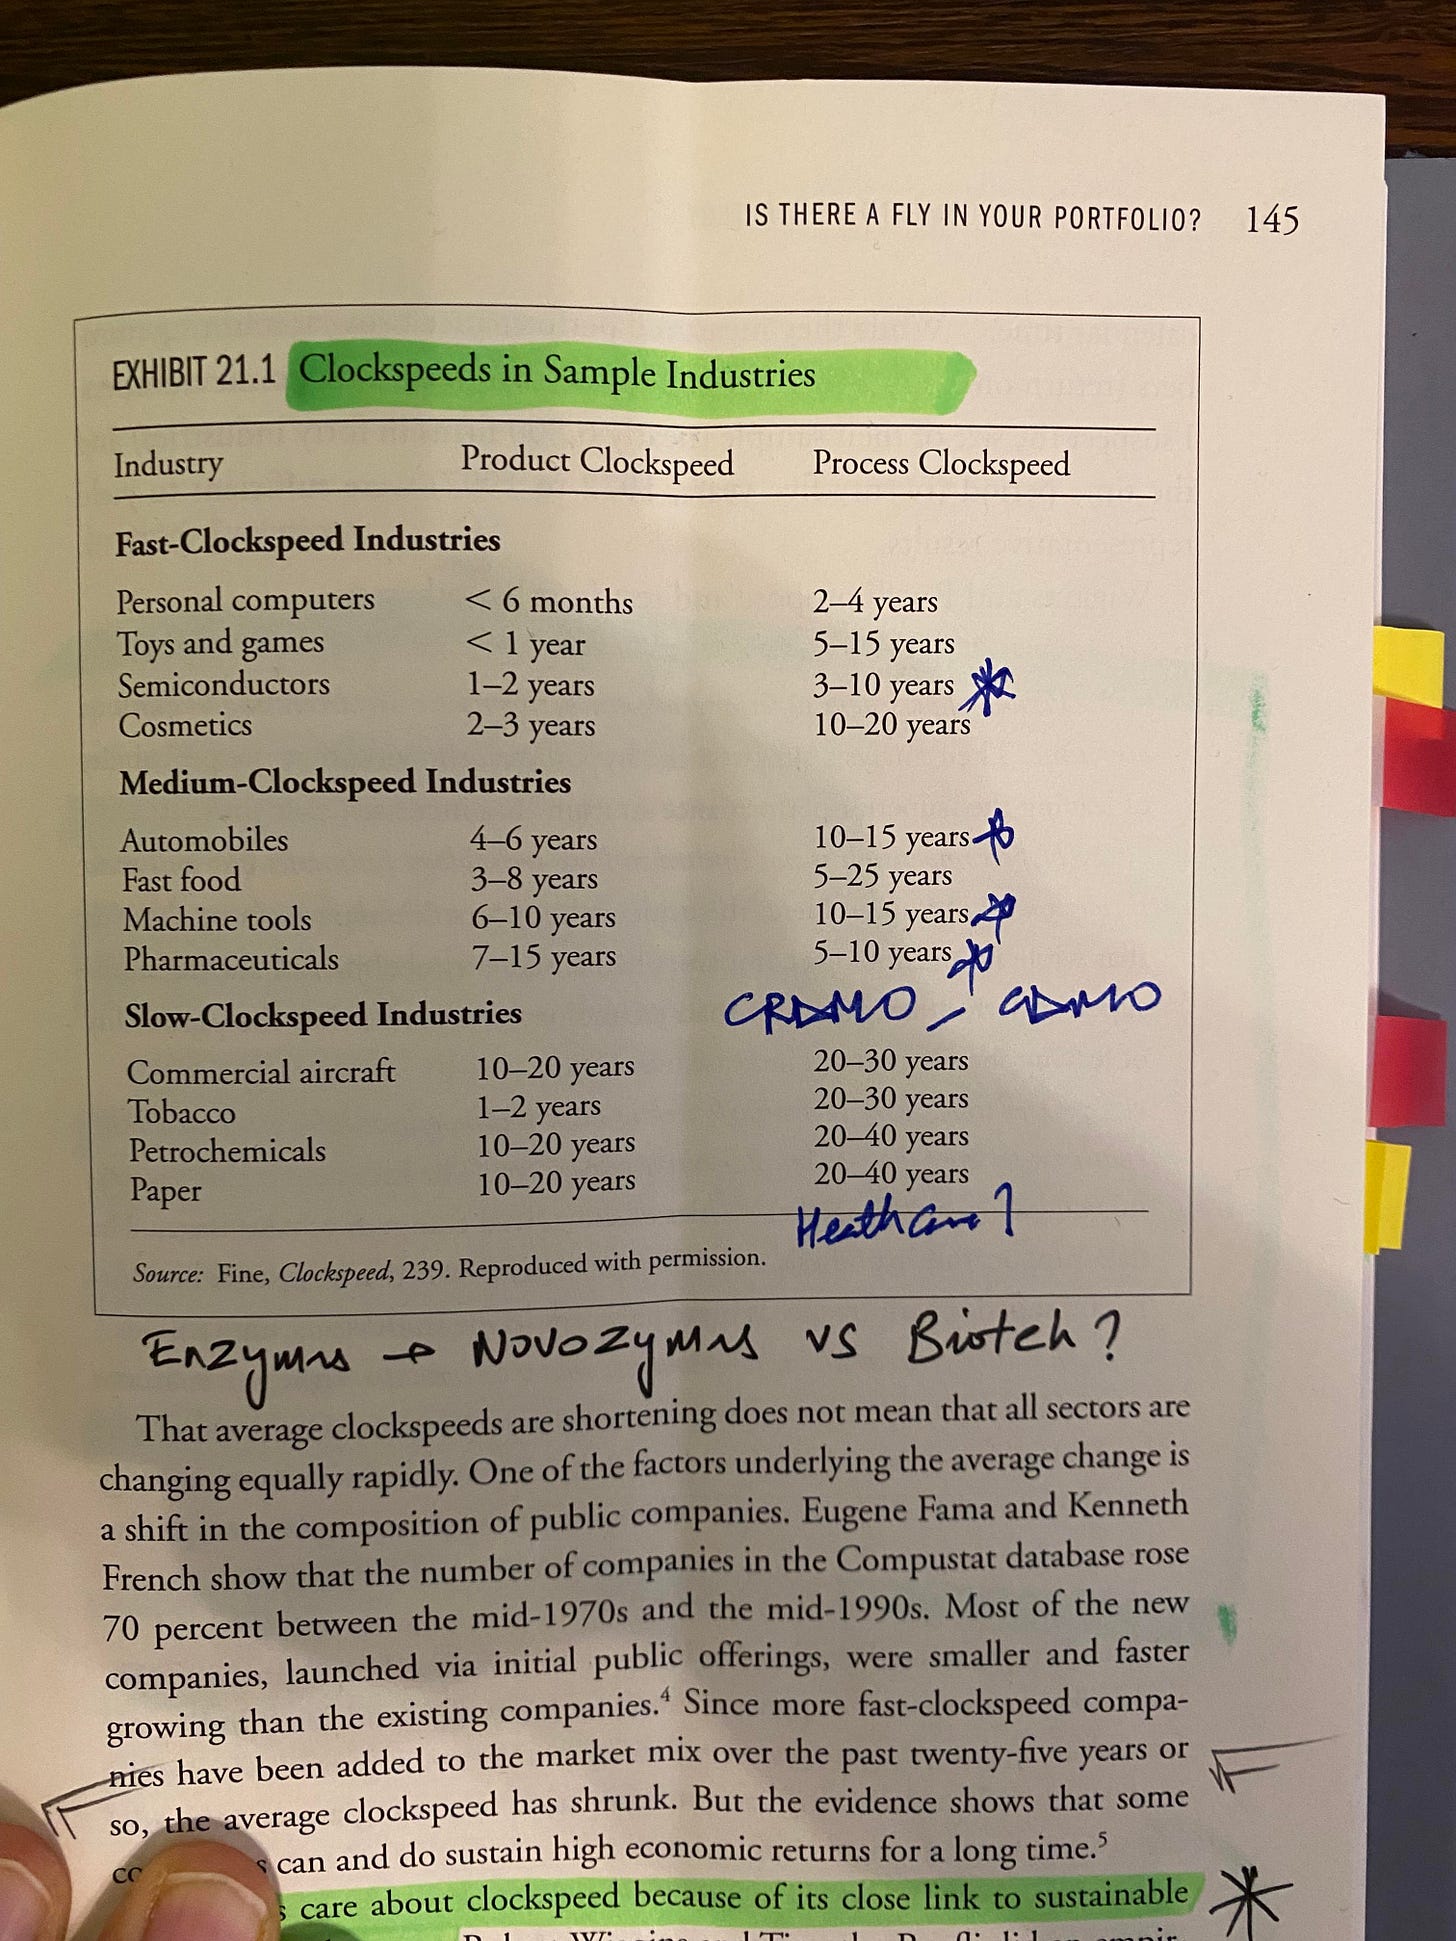 IS THERE A FLY IN YOUR PORTFOLIO? 145
EXHIBIT 21.1 Clockspeeds in Sample Industries
Industry Product Clockspeed Process Clockspeed
Fast-Clockspeed Industries
Personal computers < 6 months 2–4 years
Toys and games < 1 year 5–15 years
Semiconductors 1–2 years 3–10 years
Cosmetics 2–3 years 10–20 years
Medium-Clockspeed Industries
Automobiles 4–6 years 10–15 years
Fast food 3–8 years 5–25 years
Machine tools 6–10 years 10–15 years
Pharmaceuticals 7–15 years 5–10 years
CRDMO / CDMO
Slow-Clockspeed Industries
Commercial aircraft 10–20 years 20–30 years
Tobacco 1–2 years 20–30 years
Petrochemicals 10–20 years 20–40 years
Paper 10–20 years 20–40 years
HeathCare?
Source: Fine, Clockspeed, 239. Reproduced with permission.
Enzymes → Novozymes vs Biotech?
That average clockspeeds are shortening does not mean that all sectors are
changing equally rapidly. One of the factors underlying the average change is
a shift in the composition of public companies. Eugene Fama and Kenneth
French show that the number of companies in the Compustat database rose
70 percent between the mid-1970s and the mid-1990s. Most of the new
companies, launched via initial public offerings, were smaller and faster
growing than the existing companies.4 Since more fast-clockspeed compa-
nies have been added to the market mix over the past twenty-five years or
so, the average clockspeed has shrunk. But the evidence shows that some
can and do sustain high economic returns for a long time.5
care about clockspeed because of its close link to sustainable